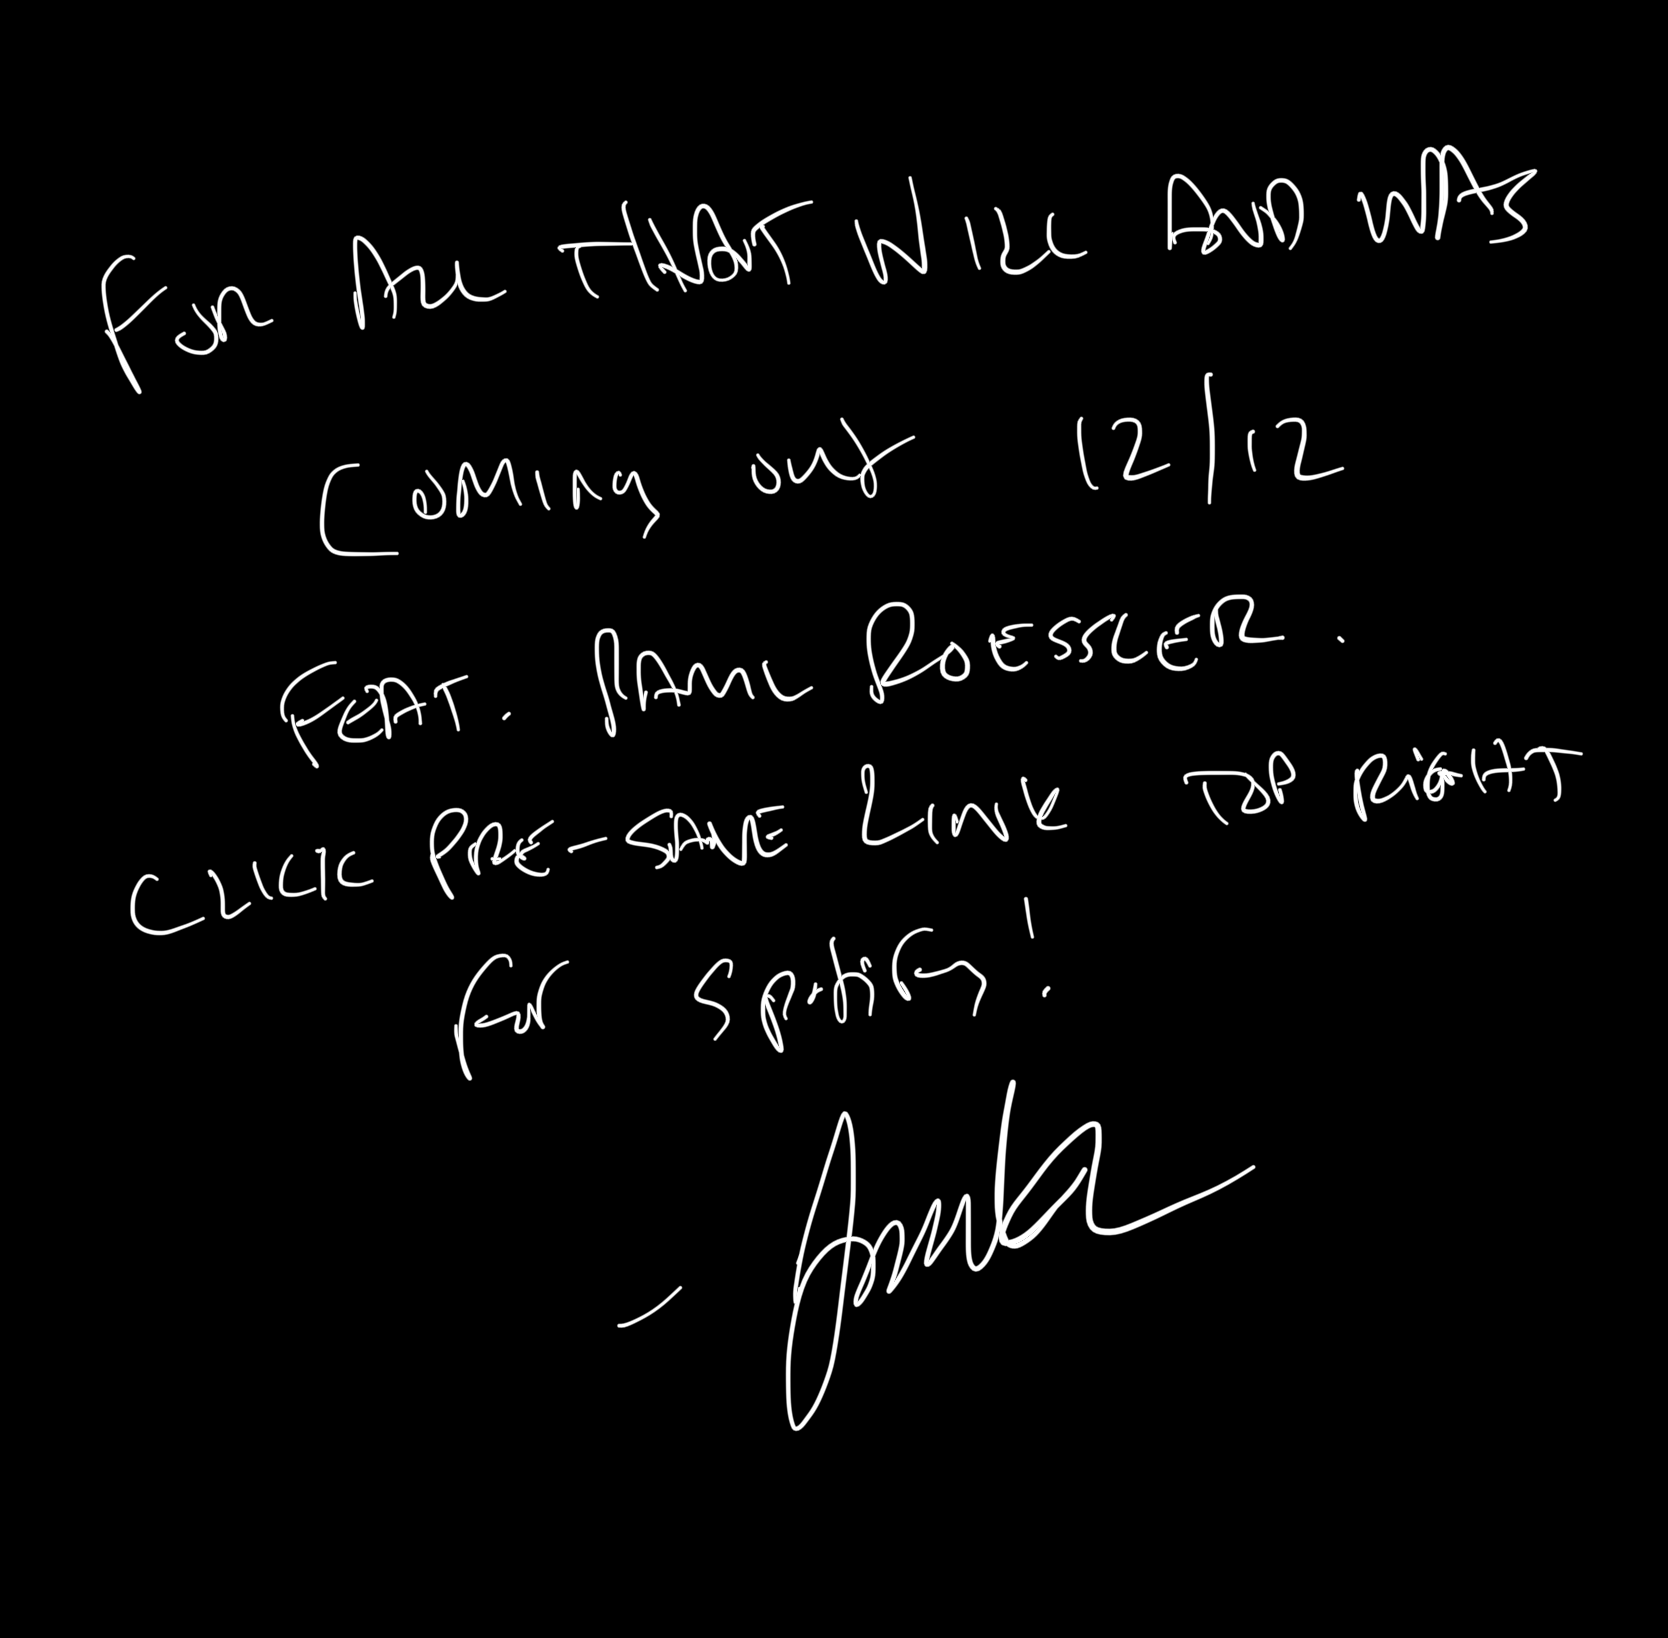 For ALL THAT WILL AND WAS
Coming out 12/12
FEAT. PAUL ROESSLER.
CLICK PRE-SAVE LINK TOP RIGHT
for Spotify!
-